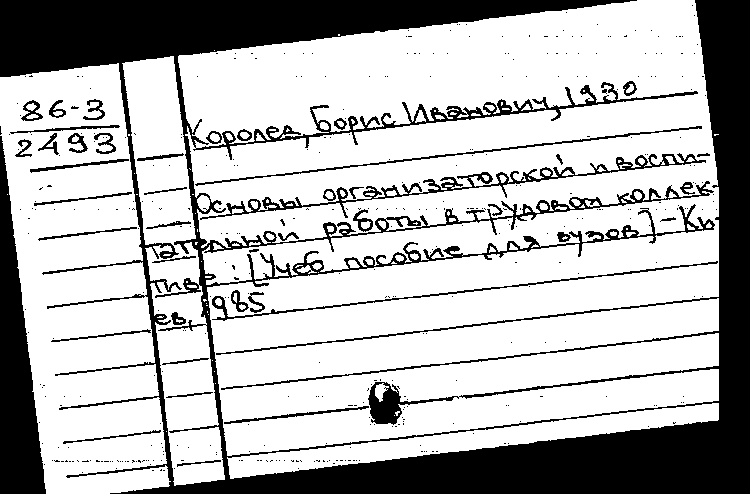 86-3
2493
Королев, Борис Иванович, 1930
Основы организаторской и воспи-
тательной работы в трудовом коллек-
тиве : [Учеб пособие для вузов] - Ки-
ев, 1985.